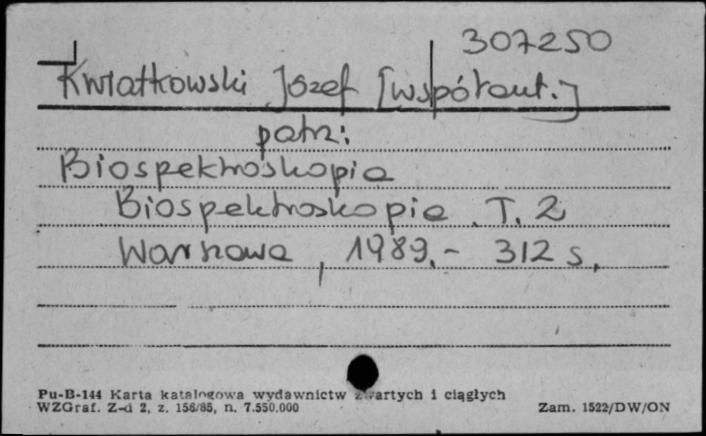 307250
Kwiatkowski Józef [współaut.]
patrz:
Biospektroskopia
Biospektroskopia. T. 2
Warszawa, 1989.- 312 s.
Pu-B-144 Karta katalogowa wydawnictw zwartych i ciągłych
WZGraf. Z-d 2, z. 156/85, n. 7.550.000
Zam. 1522/DW/ON